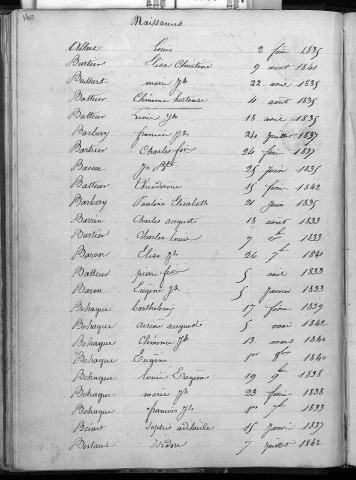 Naissances
Louis 2 fev 1835
Bartier Elisa Christine 9 aout 1841
marie jh 22 mai 1835
Batteur Chimene hortense 4 aout 1835
Batteur Louis jh 18 avril 1835
Barbery francois jh 24 juillet 1837
Bartier Charles fois 24 fev 1837
jn Bte 25 juin 1835
Batteur Theodorine 15 fev 1842
Barbery Pauline Elisabeth 21 juin 1835
Charles auguste 13 aout 1833
Bartier Charles Louis 7 1833
Baron Elisa jh 26 7bre 1840
Batteur pierre fois 5 1833
Baron Eugène jh 5 janvier 1833
Behague barthelemi 17 fev 1839
Behague auguste 5 mai 1842
Behague Chimene jh 13 mars 1840
Behague Eugène 1er 8bre 1840
Behague Louis Eugène 19 9bre 1838
Behague marie jh 23 fev 1838
Behague francois jh 1er 1833
Sophie adelaide 15 janvier 1837
Isidore 7 juillet 1842